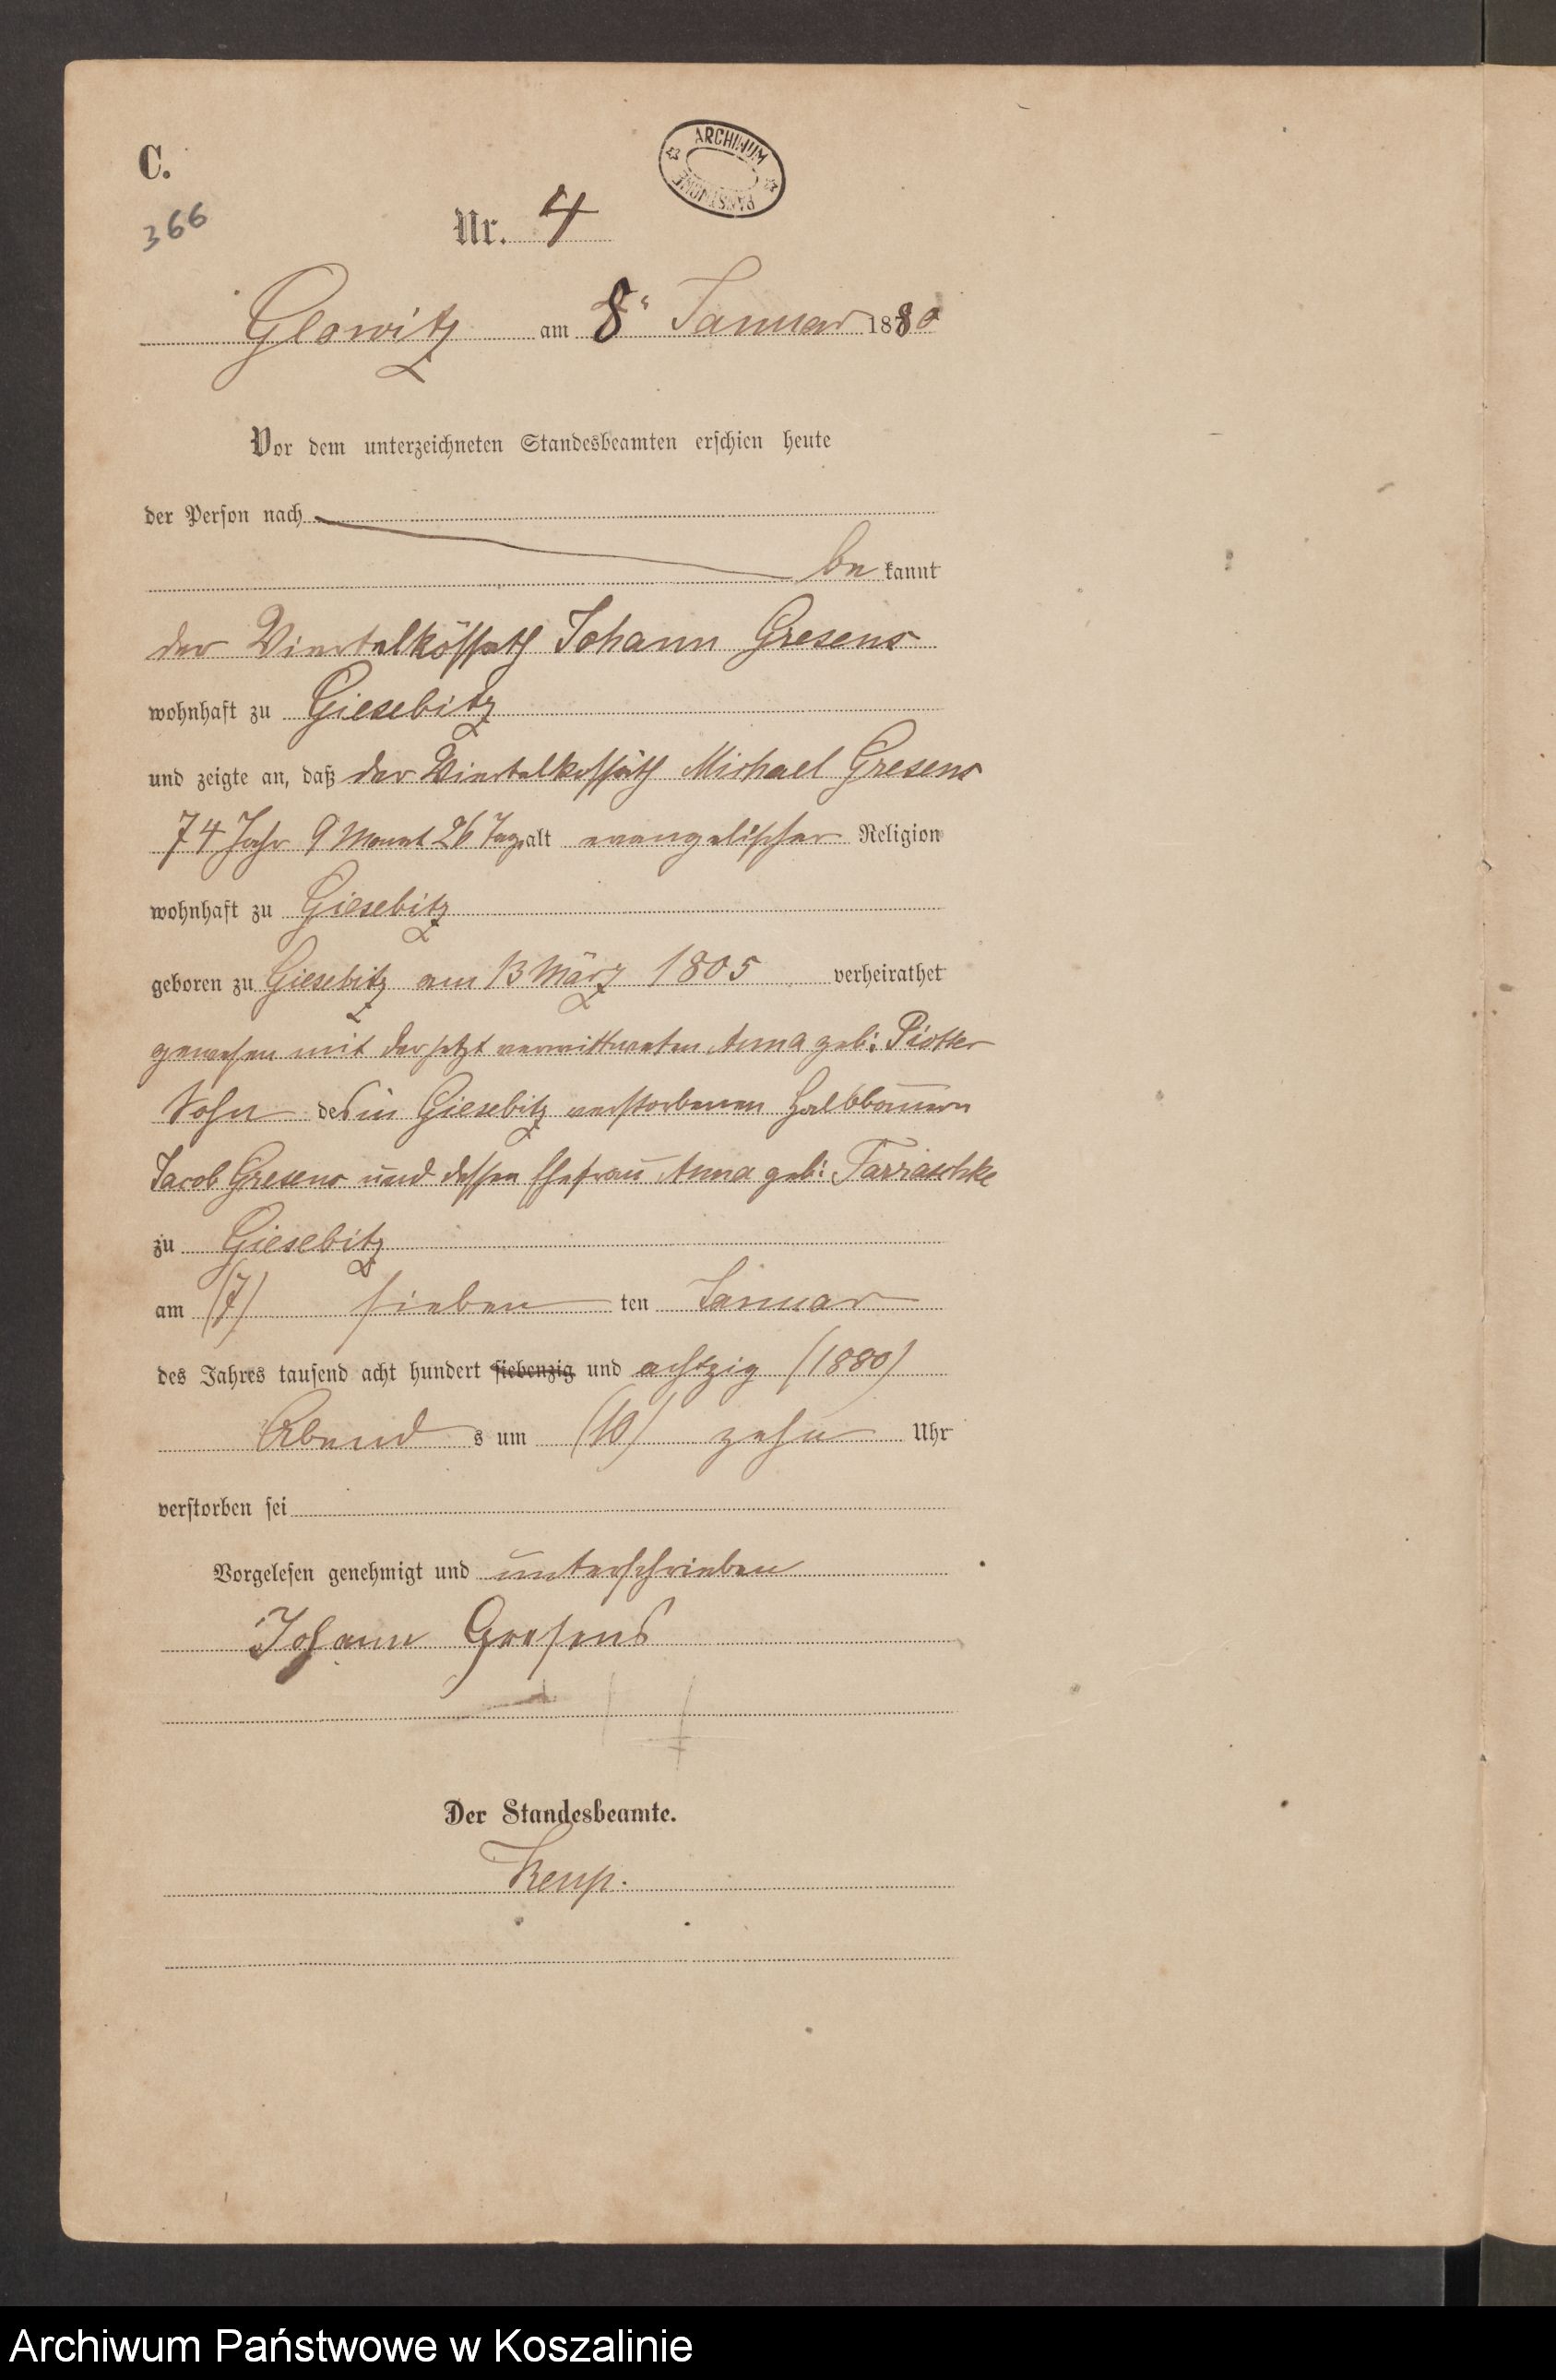 C.
ARCHIWUM
PAŃSTWOWE
366
Nr. 4
Glowitz am 8" Januar 1880
Vor dem unterzeichneten Standesbeamten erschien heute
der Person nach
be kannt
der Viertelkössath Johann Gresens
wohnhaft zu Giesebitz
und zeigte an, daß der Viertelkossäth Michael Gresens
74 Jahr 9 Monat 26 Tag alt evangelischer Religion
wohnhaft zu Giesebitz
geboren zu Giesebitz am 13 März 1805 verheirathet
gewesen mit der jetzt verwittweten Anna geb: Piotter
Sohn des in Giesebitz verstorbenen Halbbauern
Jacob Gresens und dessen Ehefrau Anna geb: Tarraschke
zu Giesebitz
am (7) sieben ten Januar
des Jahres tausend acht hundert siebenzig und achtzig (1880)
Abend s um (10) zehn Uhr
verstorben sei
Vorgelesen genehmigt und unterschrieben
Johann Gresens
Der Standesbeamte.
Archiwum Państwowe w Koszalinie